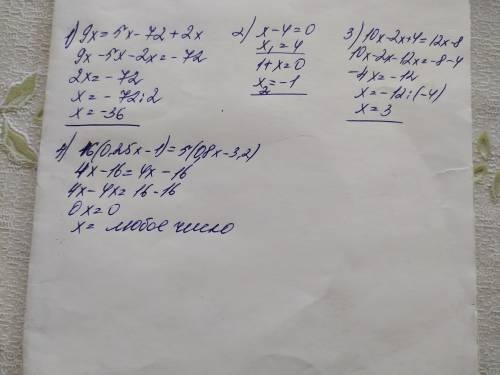 1) 9x = 5x - 72 + 2x
9x - 5x - 2x = -72
2x = -72
x = -72:2
x = -36
2) x - 4 = 0
x₁ = 4
1 + x = 0
x₂ = -1
3) 10x - 2x + 4 = 12x - 8
10x - 2x - 12x = -8 - 4
-4x = -12
x = -12:(-4)
x = 3
4) 16(0,25x - 1) = 5(0,8x - 3,2)
4x - 16 = 4x - 16
4x - 4x = 16 - 16
0x = 0
x = любое число